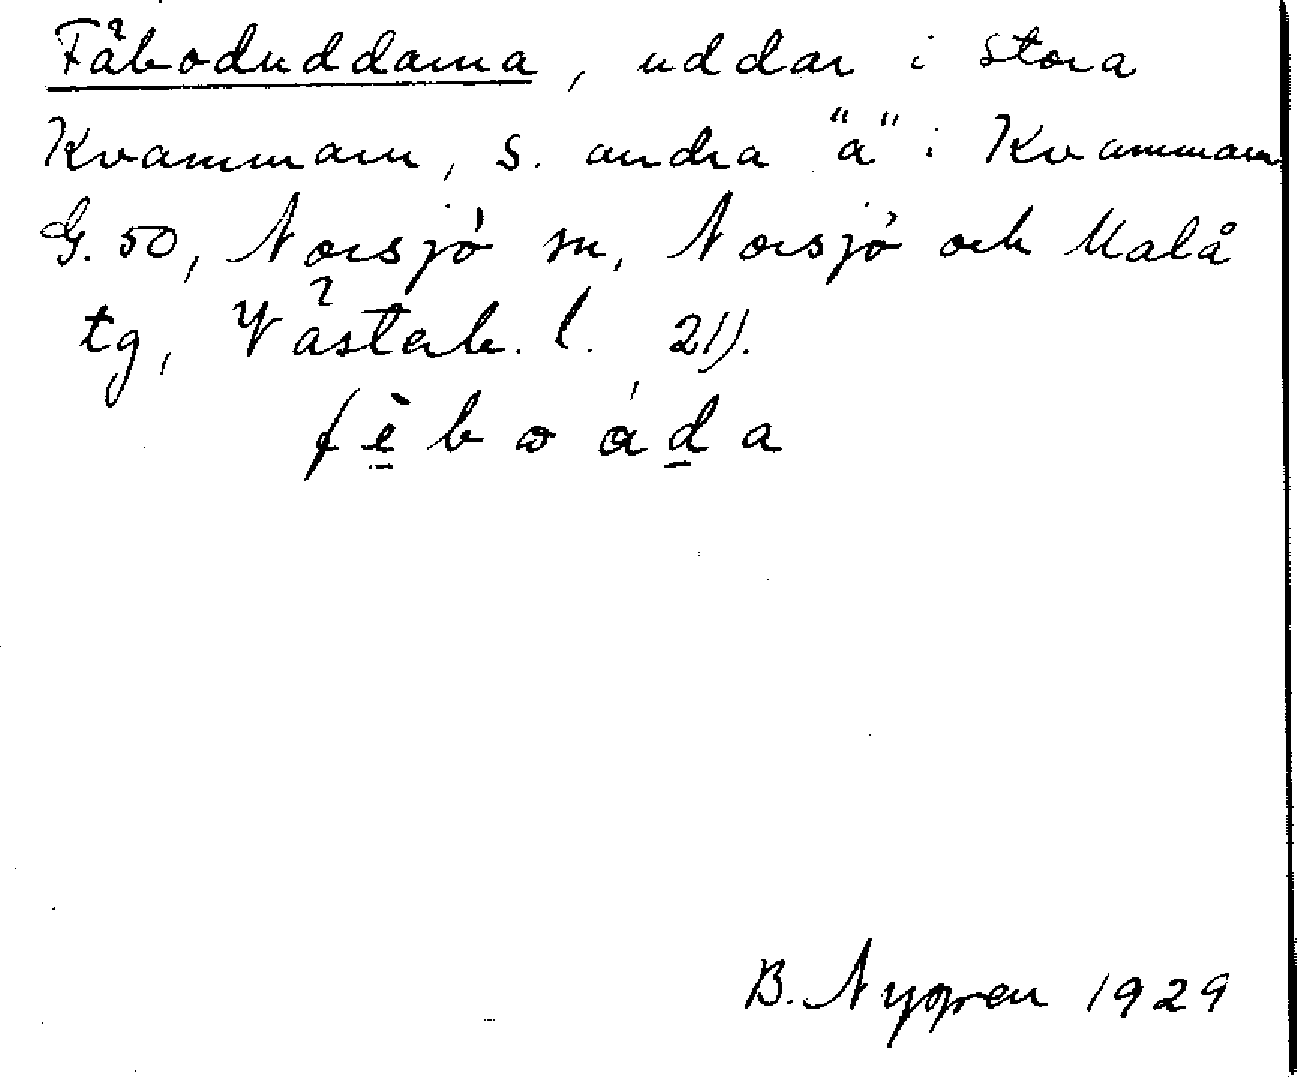 Fäboduddarna, uddar i Stora
Kvammarn, S. andra "a" i Kvammarn
G. 50, Norsjö sn, Norsjö och Malå
tg, Västerb. l. 21).
fèbωáda
B. Nygren 1929